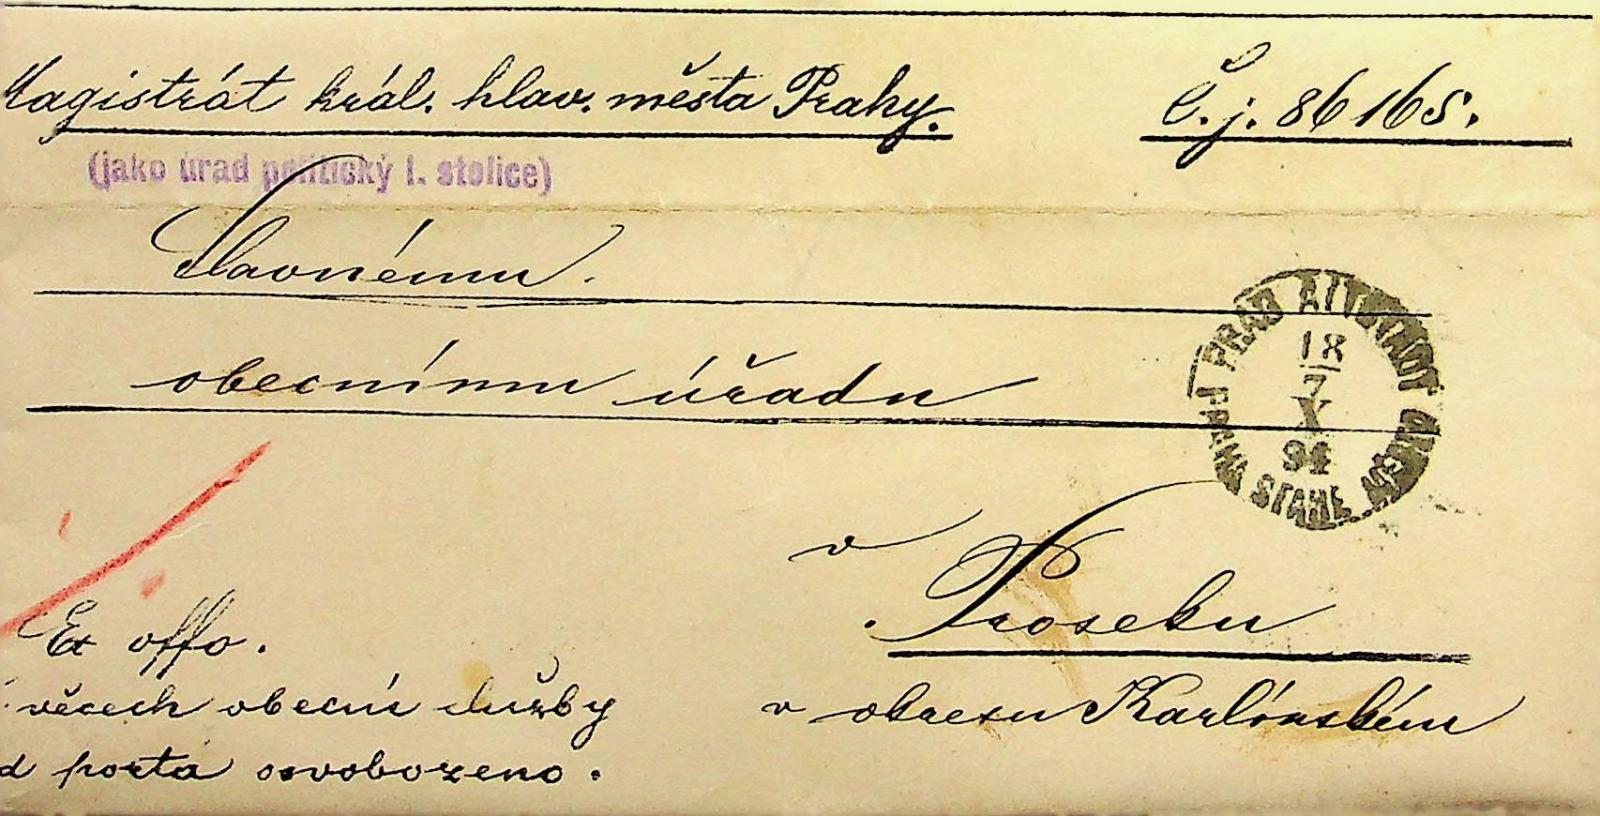 Magistrát král. hlav. města Prahy.
Č. j. 86165.
(jako úřad politický I. stolice)
Slavnému
obecnímu úřadu
PRAG ALTSTADT
18
7
X
94
PRAHA STARÉ
v
Proseku
v okresu Karlínském
Ex offo.
věcech obecní služby
od porta osvobozeno.